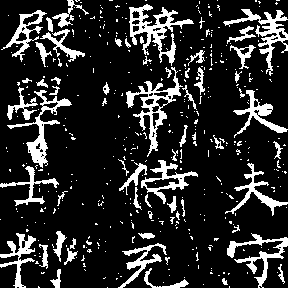 議大夫守
騎常侍充
殿學士判